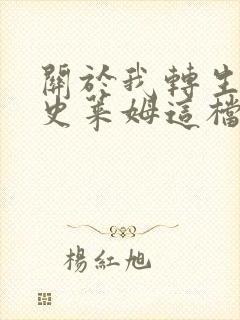 關於我轉生
史萊姆這檔
楊紅旭